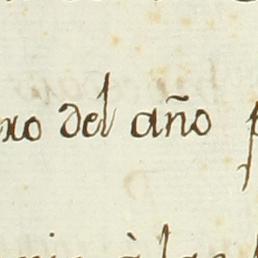 xo del año p
à las